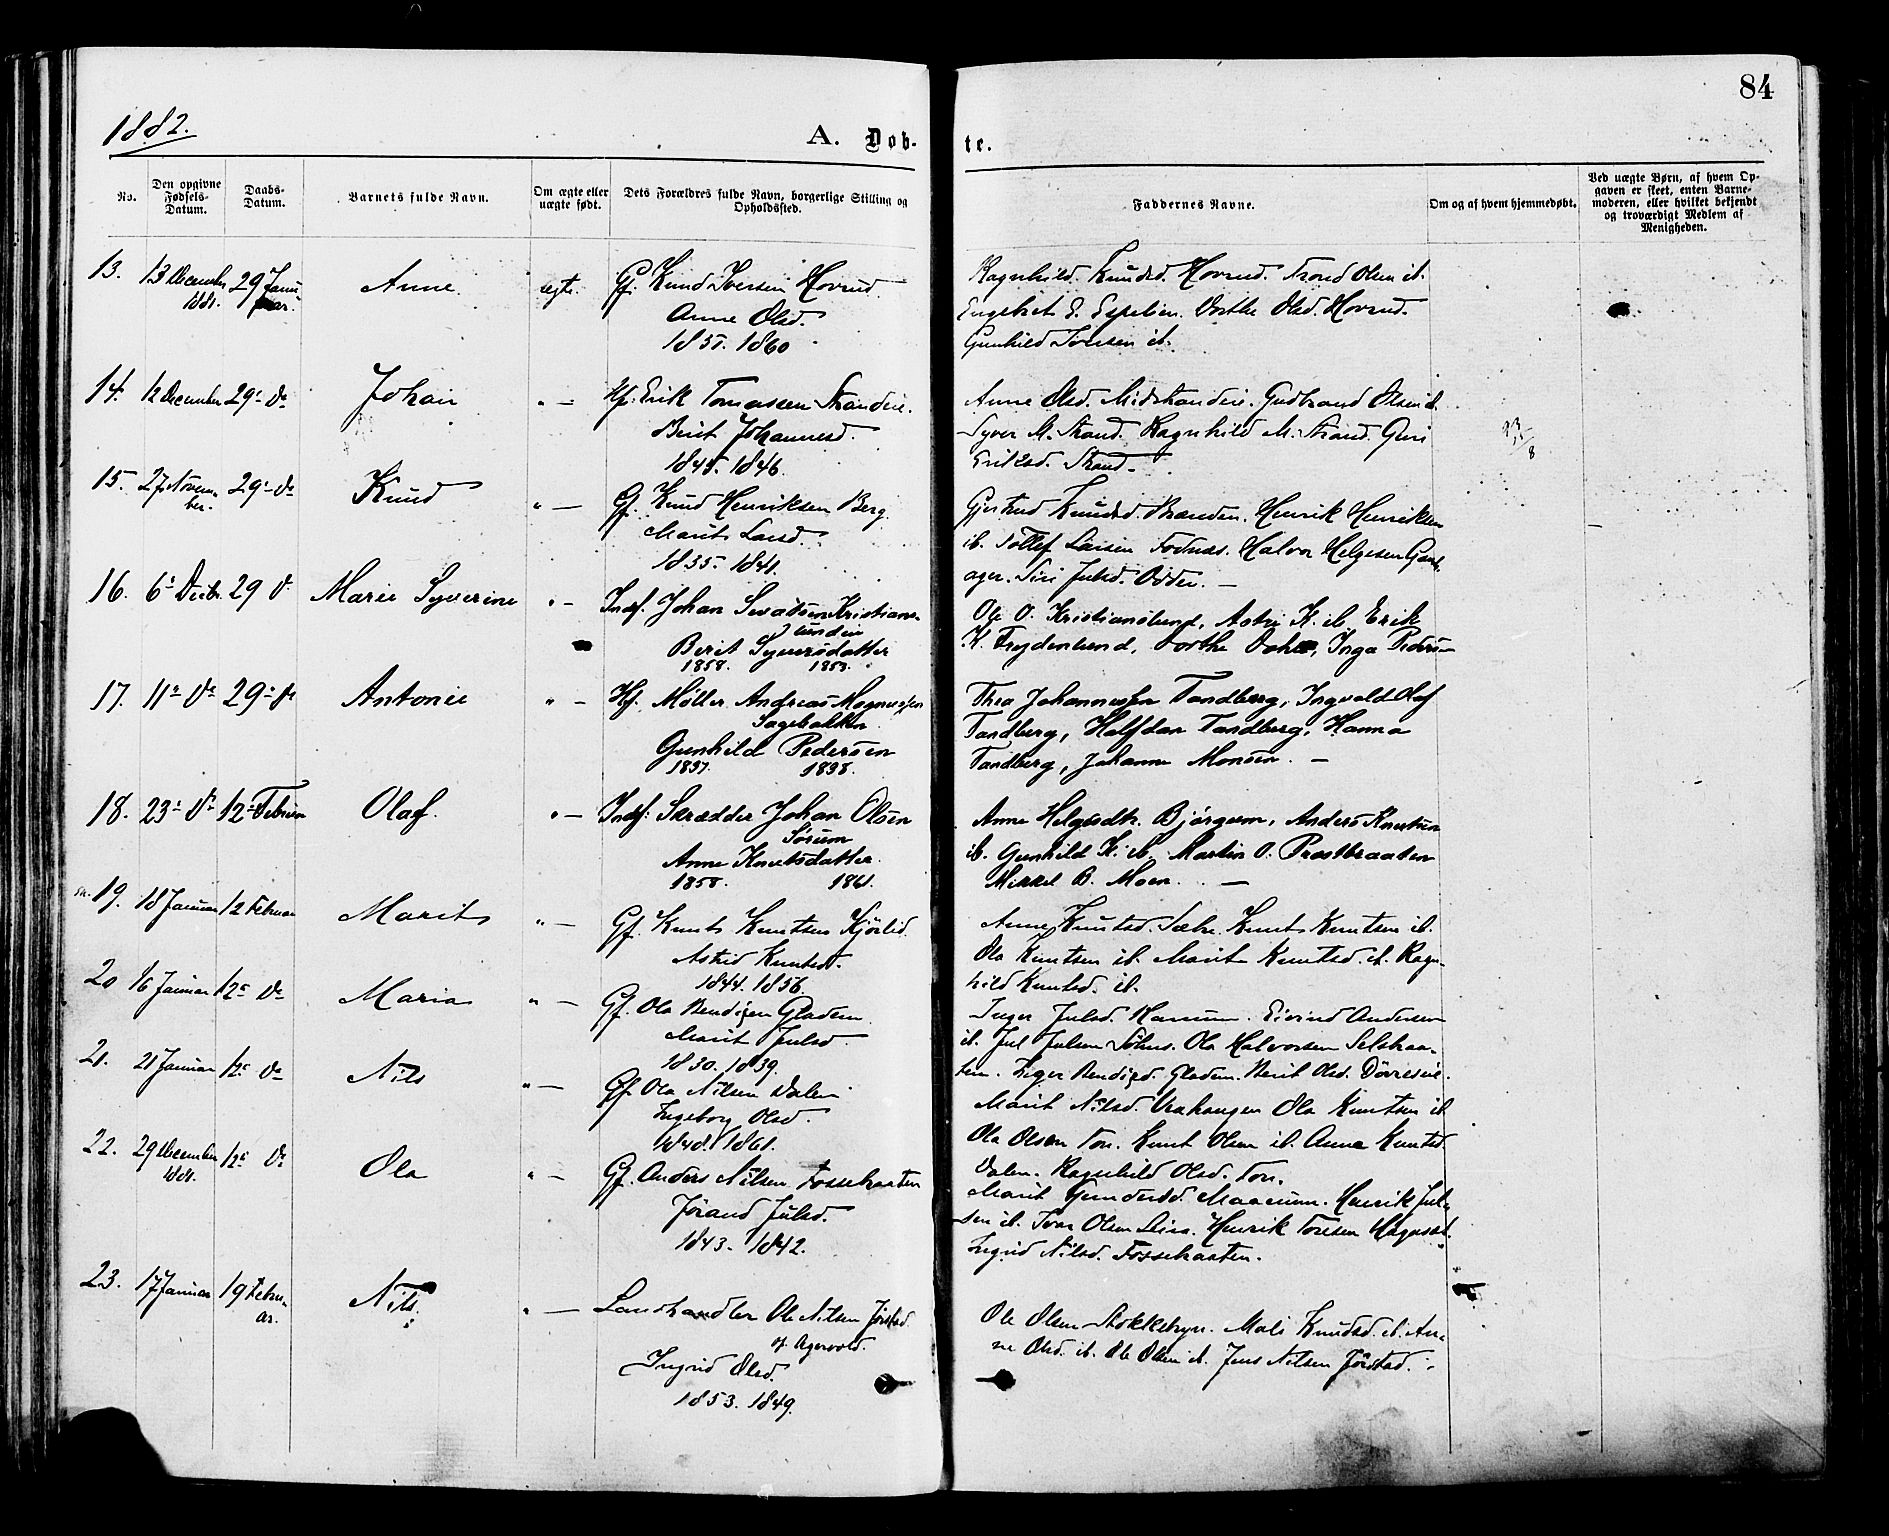 84
1882.
A. Døb-
te.
No.
Den opgivne Fødsels-Datum.
Daabs-Datum.
Barnets fulde Navn.
Om ægte eller uægte født.
Dets Forældres fulde Navn, borgerlige Stilling og Opholdssted.
Faddernes Navne.
Om og af hvem hjemmedøbt.
Ved uægte Børn, af hvem Op-
gaven er skeet, enten Barne-
moderen, eller hvilket bekjendt
og troværdigt Medlem af
Menigheden.
13. 13 December 1881. 29 Januar. Anne. ægte. Gf. Knud Iversen Hovrud.
Anne Olsd.
1857. 1860
Ragnhild Knudsd. Hovrud. Trond Olsen ib.
Engebret E. Espelien. Dorthe Olsd. Hovrud.
Gunhild Iversen ib.
14. 12 December 29de Do Johan " — Hf. Erik Tomassen Strande.
Berit Johannesd.
1845. 1846.
Anne Olsd. Midstrandeie. Gudbrand Olsen ib.
Syver M. Strand. Ragnhild M. Strand. Guri
Eriksd. Strand.
15. 27. November. 29de Do Knud " — Gf. Knud Henriksen Berg.
Marit Larsd.
1835. 1841.
Gjertrud Knudsd. Brænden. Henrik Henriksen
ib. Tollef Larsen Fodnæs. Halvor Helgesen
ager. Siri Julsd. Odden. —
16. 6te Decbr. 29 D. Marie Syverine " — Indf. Johan Kristians-
lundeie
Berit Syversdatter
1858. 1853.
Ole O. Kristianslund, Astri K. ib Erik
K. Frydenlund, Dorthe, Inga Peders—
17. 11te Do 29de Do Antonie " — Hf. Møller Andreas Magnussen
Sagebakken
Gunhild Pedersen
1837. 1838.
Thea Johannessen Tandberg, Ingvald Olaf
Tandberg, Halfdan Tandberg, Hanna
Tandberg, Johanne Monsen. —
18. 23de Do 12te Februar Olaf. " — Indf. Skrædder Johan Olsen
Sørum
Anne Knutsdatter.
1858. 1861.
Anne Helgesdtr. Bjørgum, Anders Knutsen
ib. Gunhild K. ib, Martin O. Præstbraaten
Mikkel B. Moen. —
19. 18 Januar 12 Februar Marit " — Gf. Knut Knutsen Kjørlid.
Astrid Knutsd.
1844. 1856.
Anne Knutsd. Sæbr. Knut Knutsen ib.
Ola Knutsen ib. Marit Knutsd. ib. Ragn-
hild Knutsd. ib.
20 16 Januar 12te Do Maria " — Gf. Ola Bendigsen Gladem
Marit Julsd.
1830. 1839.
Inger Julsd. Eivind Andersen
ib. Jul Julsen Ola Halvorsen Selsbraa-
ten. Inger Bendigsd. Gladem. Berit Olsd.
21. 21 Januar 12te Do Nils " — Gf. Ola Nilsen Dalen
Ingeborg Olsd.
1848. 1861.
Marit Nilsd. Ola Knutsen ib
Ola Olsen Ton. Knut Olsen ib. Anne Knutsd
Dalen. Ragnhild Olsd. Ton.
22. 29 December 1881. 12te Do Ola " — Gf. Anders Nilsen Fossebraaten
Jørand Julsd.
1843. 1842.
Marit Gundersd. Henrik Jul-
sen ib. Ivar Olsen Leira. Henrik Toresen
Ingrid Nilsd. Fossebraaten.
23. 17 Januar 19 Februar. Nils. " — Landhandler Ole Nilsen Jørstad
af Agervold.
Ingrid Olsd.
1853. 1849.
Ole Olsen Stokkebryn. Mali Knudsd. ib. An-
ne Olsd. ib. Ole Olsen ib. Jens Nilsen Jørstad.